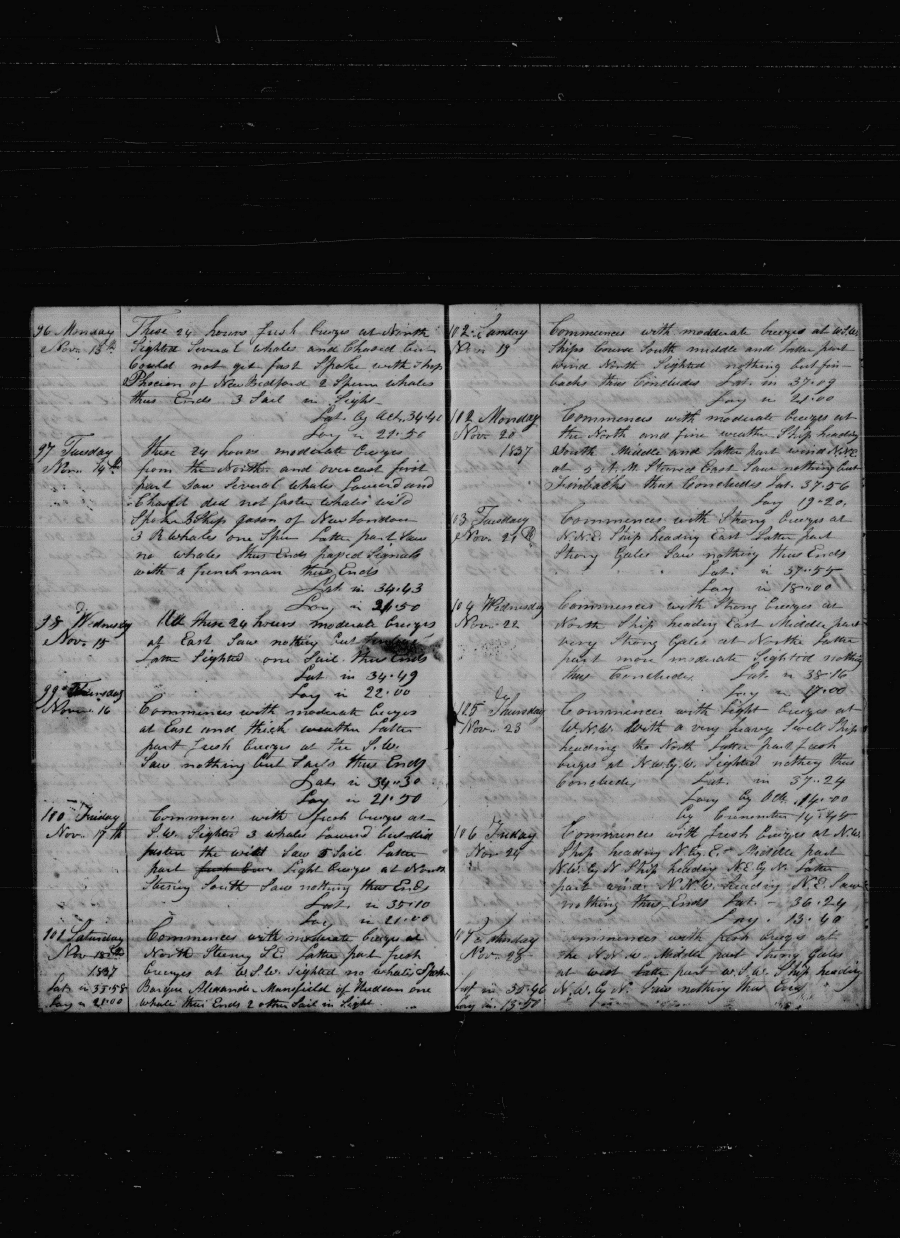 96 Monday
Nov. 13th
These 24 hours fresh breezes at North
Sighted Several whales and Chased but
Could not get fast Spoke with Ship
Phocion of New Bedford 2 Sperm whales
thus Ends 3 Sail in Sight
Lat. By Acct. 34..40
Long in 21..50
97 Tuesday
Nov. 14th
These 24 hours moderate breezes
from the North and overcast first
part Saw Several whales Lowerd and
Chased did not fasten whales wild
Spoke Ship Jason of New London
3 R Whales one Spm Latter part Saw
no whales thus Ends payed Signals
with a frenchman thus Ends
Lat in 34..43
Long in 21..50
98 Wednesday
Nov. 15
All these 24 hours moderate breezes
at East Saw nothing but
Latter Sighted one Sail thus Ends
Lat in 34..49
Long in 22..00
99 Thursday
Nov. 16
Commences with moderate breezes
at East and thick weather Latter
part fresh breezes at the S.W.
Saw nothing but Sails thus Ends
Lat. in 34..30
Long in 21..50
100 Friday
Nov. 17th
Commences with fresh breezes at
S.W. Sighted 3 whales Lowerd but did
fasten the wild Saw 5 Sail Latter
part Light breezes at North
Steering South Saw nothing thus Ends
Lat. in 35..10
Long in 21..00
101 Saturday
Nov 18th
1837
Lat in 35..58
Long in 21..00
Commences with moderate breezes at
North Steering S.E. Latter part fresh
breezes at W.S.W. Sighted no whales Spoke
Barque Alexander Mansfield of Hudson one
whale thus Ends 2 other Sail in Sight
102 Sunday
Nov 19
Commences with modderate breezes at W.S.W.
Ships Course South middle and Latter part
wind North Sighted nothing but fin
backs thus Concludes Lat. in 37..09
Long in 21..00
102 Monday
Nov. 20
1837
Commences with moderate breezes at
the North and fine weather Ship heading
South Middle and Latter part wind N.N.E.
at 5 A.M. Steered East Saw nothing but
Finbacks thus Concludes Lat. 37..56
Long 19..20.
103 Tuesday
Nov. 21
Commences with Strong breezes at
N.N.E. Ship heading East Latter part
Strong Gales Saw nothing thus Ends
Lat. in 37..54
Long in 18..00
104 Wednesday
Nov. 22
Commences with Strong breezes at
North Ship heading East Middle part
very Strong Gales at North Latter
part more moderate Sighted nothing
thus Concludes Lat. in 38..16
Long in 17..00
105 Thursday
Nov. 23
Commences with Light breezes at
W.N.W. with a very heavy Swell Ship
heading the North Latter part fresh
breezes at N.W.by.W. Sighted nothing thus
Concludes Lat. in 37..24
Long By Obs. 14..00
by Cronometer 14..45
106 Friday
Nov 24
Commences with fresh breezes at N.W.
Ship heading N.by.E. Middle part
N.W. by N Ship heading N.E. by N. Latter
part wind N.N.W. heading N.E. Saw
nothing thus Ends Lat. 36..24
Long. 13..40
Nov. 25
Lat in 35..46
Long in. 13..50
Commences with fresh breezes at
the N.N.W. Middle part Strong Gales
at west Latter part W.S.W. Ship heading
N.W. by N. Saw nothing thus Ends